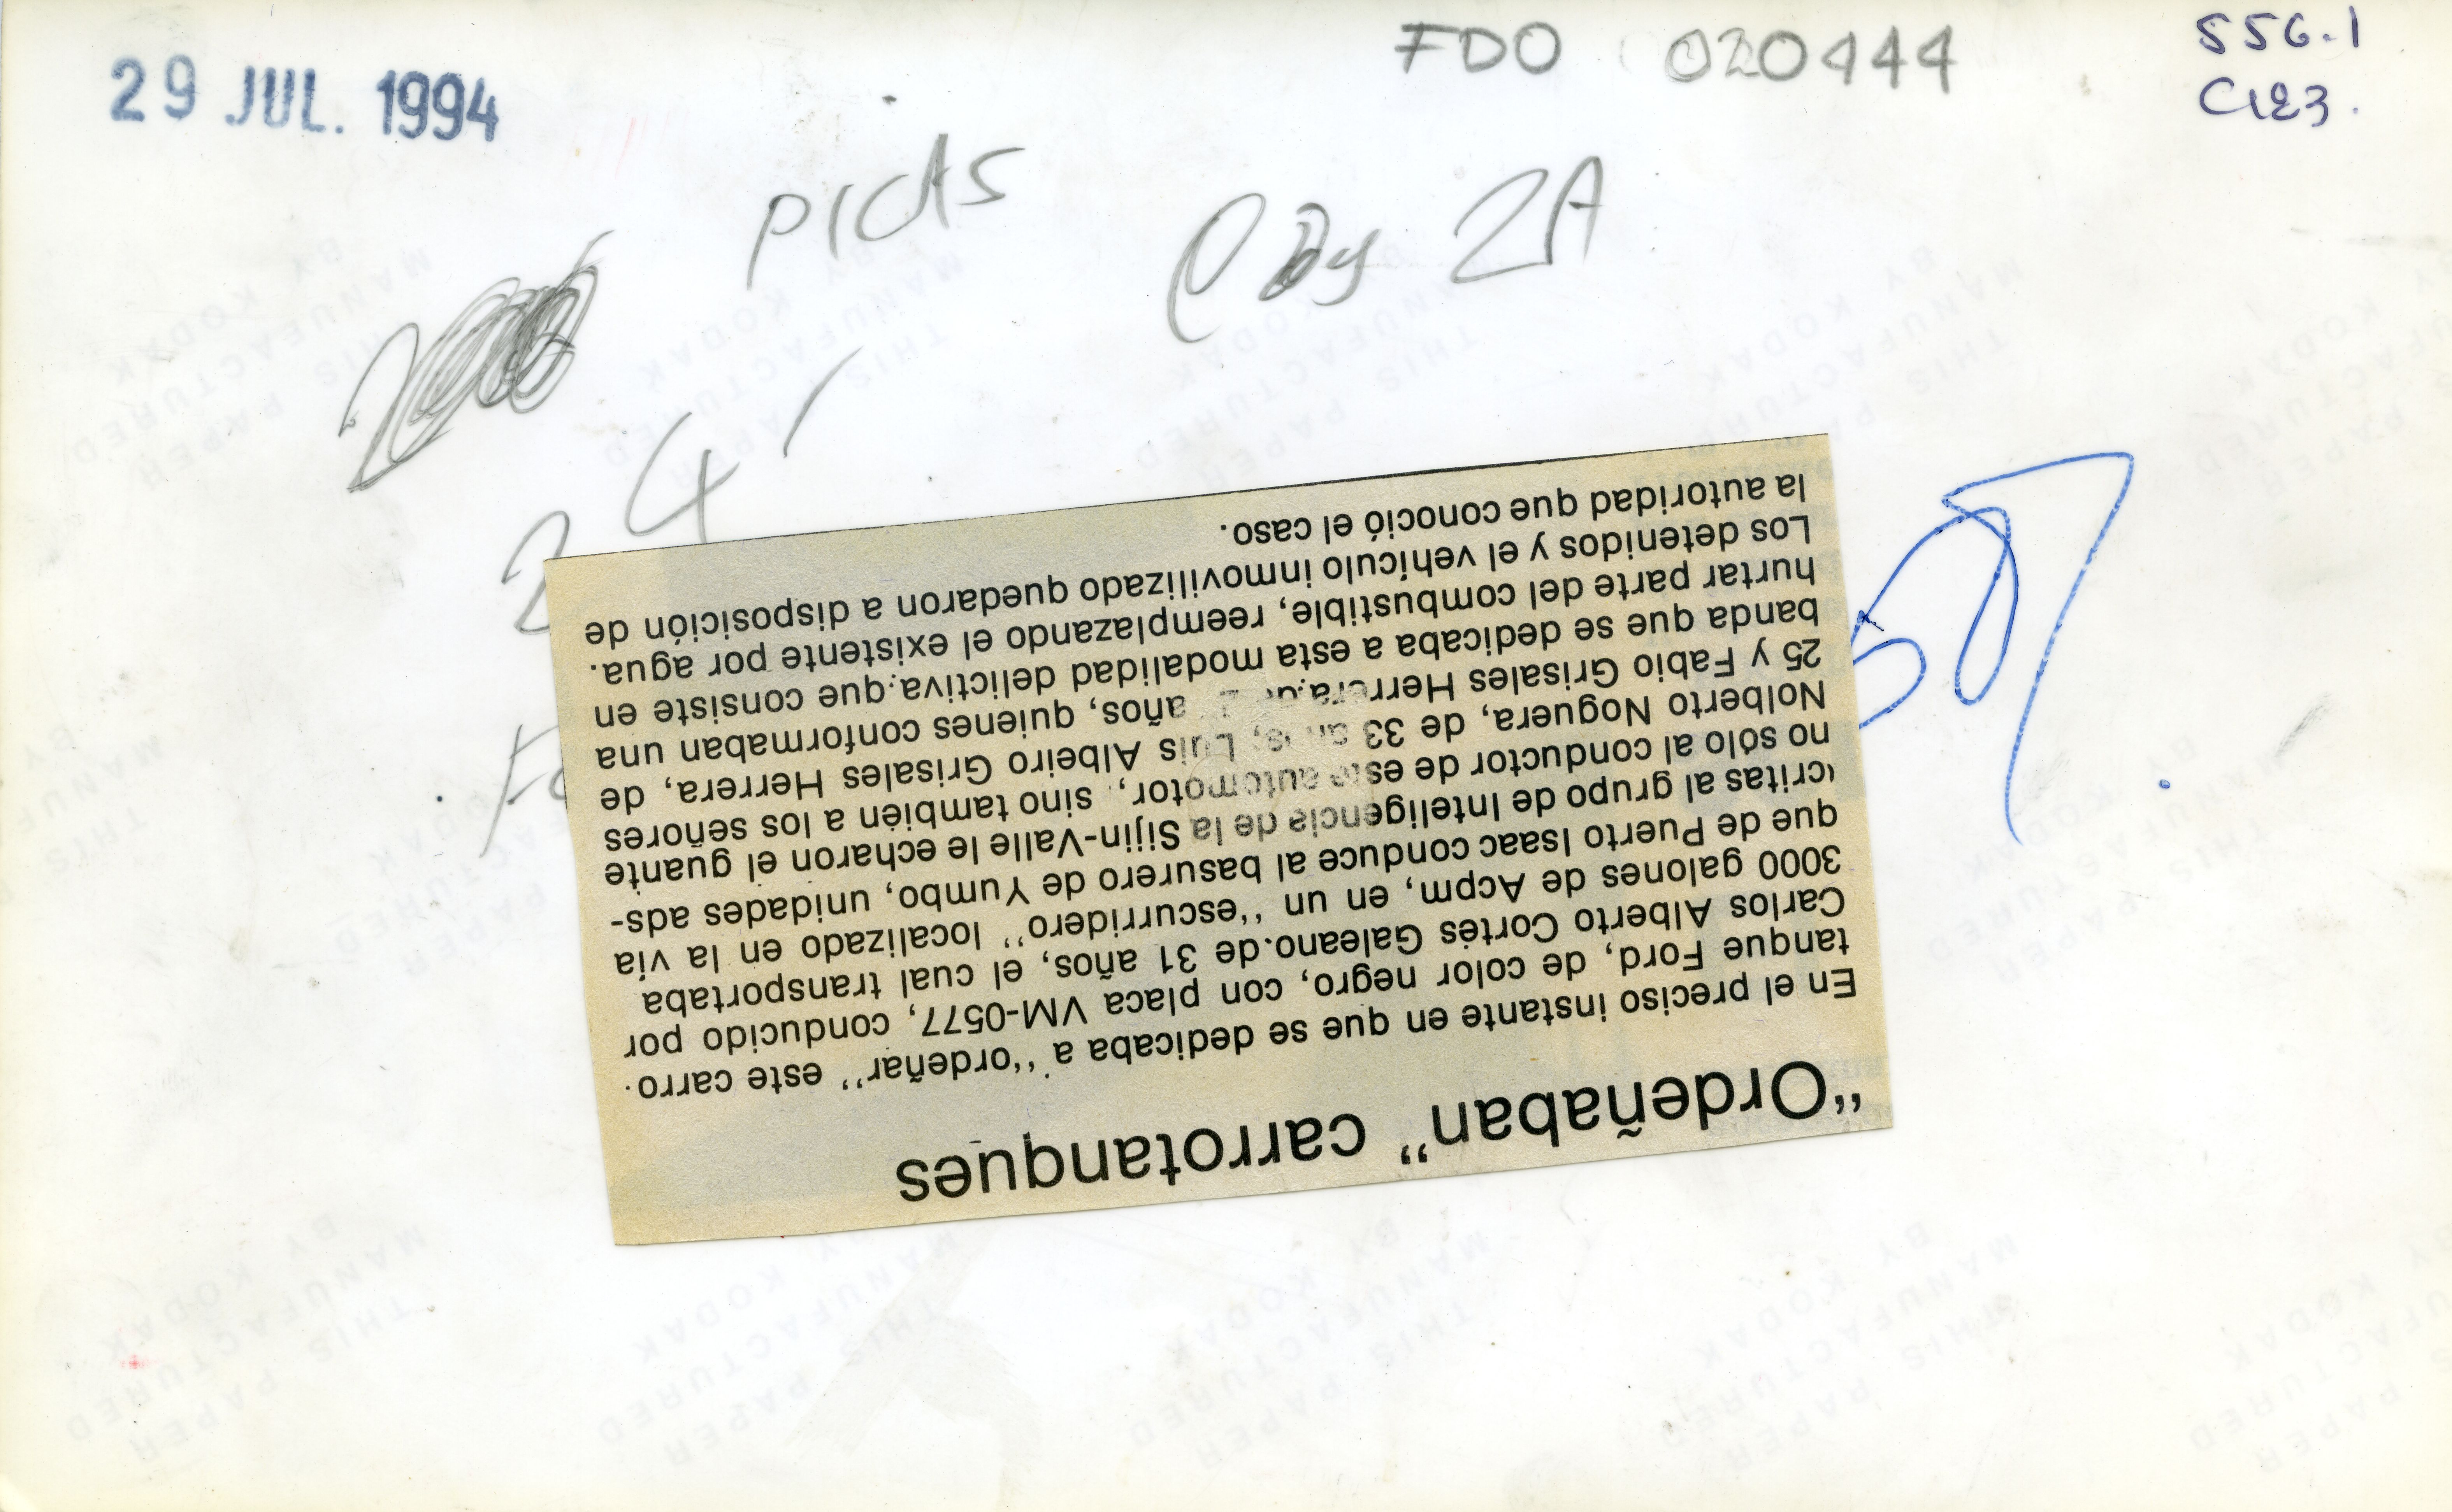 29 JUL. 1994
FDO 020444
556.1
C123.
PICAS
2A
24
"Ordeñaban" carrotanques
En el preciso instante en que se dedicaba a "ordeñar" este carro-
tanque Ford, de color negro, con placa VM-0577, conducido por
Carlos Alberto Cortés Galeano.de 31 años, el cual transportaba
3000 galones de Acpm, en un "escurridero" localizado en la vía
que de Puerto Isaac conduce al basurero de Yumbo, unidades ads-
critas al grupo de Inteligencia de la Sijin-Valle le echaron el guante
no sólo al conductor de este automotor, sino también a los señores
Nolberto Noguera, de 33 años; Luis Albeiro Grisales Herrera, de
25 y Fabio Grisales Herrera.de años, quienes conformaban una
banda que se dedicaba a esta modalidad delictiva.que consiste en
hurtar parte del combustible, reemplazando el existente por agua.
Los detenidos y el vehículo inmovilizado quedaron a disposición de
la autoridad que conoció el caso.
THIS PAPER
MANUFACTURED
BY KODAK